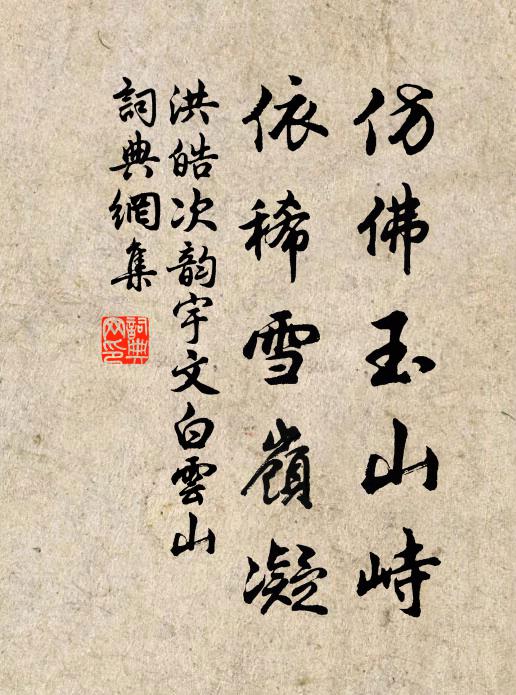 仿佛玉山峙
依稀雪嶺凝
洪皓次韵宇文白雲山
詞典網集
詞典
网印